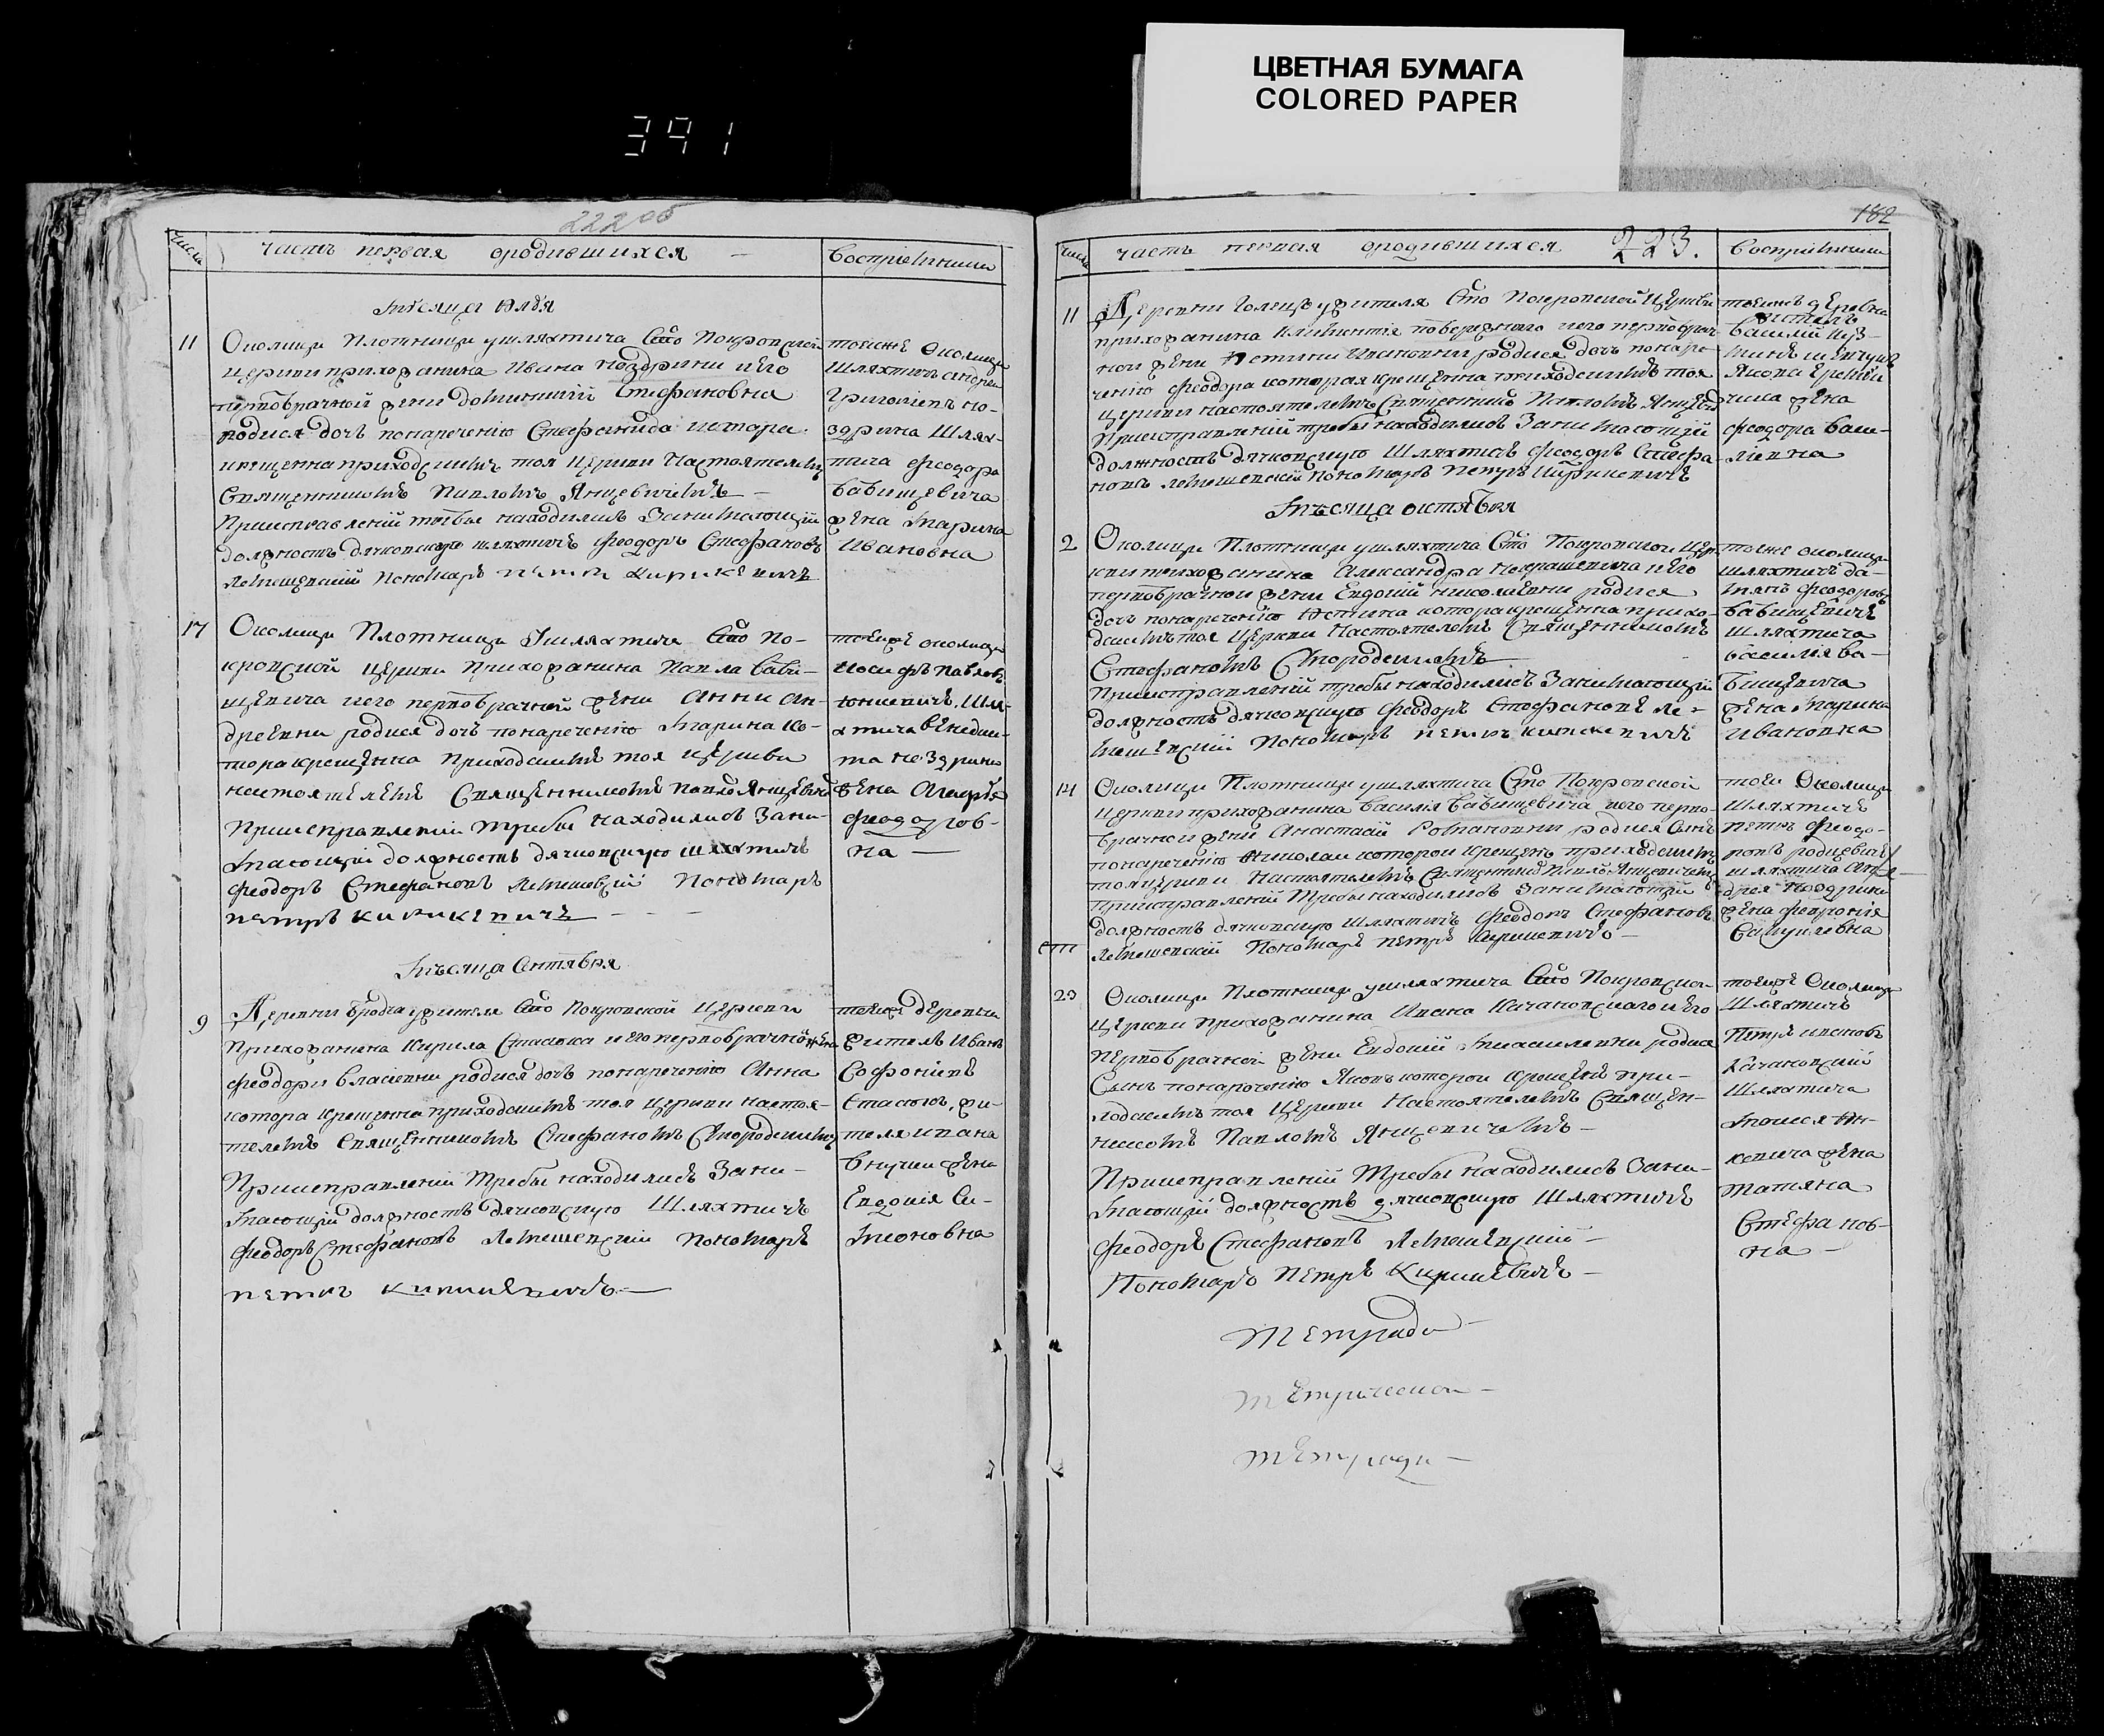 ЦВЕТНАЯ БУМАГА
COLORED PAPER
391
222 об
числа
часть первая ородившихся —
Воспріемники
Мѣсяца Юлія
11
Околицы Плотницы у шляхтича Сто Покровской
церкви прихожанина Ивана Ноздрини и его
первобрачной жени Стефановна
родися дочь понаречению Стефанида котора
крещенна приходскимъ тоя Церкви Настоятелемъ
Священникомъ Павломъ Янцевичемъ —
Приисправленіи требы находились Занимающій
должность дячковскую шляхтичъ Феодоръ Стефановъ
Лемешевскій Пономаръ Петръ Кирикевичъ
тоейже Околицы
Шляхтичъ Андреи
Григориевъ Но-
здрина Шлях-
тича Феодора
Бабицевича
жена Марина
Ивановна
17
Околицы Плотницы У шляхтича Сто По-
кровской церкви Прихожанина Павла Баби-
щевича и его первобрачной жени Анни Ан-
дреевни родися дочь понаречению Марина ко-
тора крещенна Приходскимъ тоя церкви
настоятелемъ Священникомъ Павло Янцевичемъ
Приисправлении требы находились Зани-
мающій должность дячковскую шляхтичъ
Феодоръ Стефановъ Лемешевскій Пономаръ
Петръ Кирикевичъ — — —
тоейже околицы
Иосифъ Павловъ
Юшкевичъ, Шля-
хтича Венедик-
та Ноздрини
жена Агафія
Феодоров-
на —
Мѣсяца Сентября
9
Деревни Бродча у жителя Сто Покровской Церкви
Прихожанина Кирила Стасюка и его первобрачной жена
Феодори Власіевни родися дочь понаречению Анна
котора крещенна приходскимъ тоя Церкви настоя-
телемъ Священникомъ Стефаномъ Скородскимъ
Приисправленіи Требы находились Зани-
мающій должность дячковскую Шляхтичъ
Феодоръ Стефановъ Лемешевскій Пономаръ
Петръ Кирикевичъ —
тоейже деревни
житель Иванъ
Софоніевъ
Стасюк, жи-
теля Ивана
Внучки жена
Евдокія Си-
моновна
182
числа
часть первая ородившихся
223.
Воспріемники
11
Деревни Голецъ у жителя Сто Покровской Церкви
прихожанина Климентія повережного и его первобрач-
ной жени Юстини Ивановни родися дочь понаре-
чению Феодора которая крещенна приходскимъ тоя
Церкви настоятелемъ Священникомъ Павломъ Янцевич
Приисправленіи требы находились Занимающій
должность дячковскую Шляхтичъ Феодоръ Стефа-
новъ Лемешевскій Пономаръ Петръ Кирикевичъ
тоейжъ деревни
житель
Василій Куз-
минъ
Якова
жена
Феодора Васи-
лиевна
Мѣсяца октября
2
Околицы Плотницы у шляхтича Сто Покровской Цер-
кви прихожанина Александра Некрашевича и его
первобрачной жени Евдокіи Николаевни родися
дочь понаречению Юстина котора крещенна прихо-
дскимъ тоя Церкви Настоятелемъ Священникомъ
Стефаномъ Скородскимъ
Приисправленіи требы находились Занимающій
должность дячковскую Феодоръ Стефановъ Ле-
мешевскій Пономаръ Петръ Кирикевичъ
тоейже околицы
шляхтичъ Да-
міянъ Феодоровъ
Бабицевичъ
шляхтича
Василія Ба-
бицевича
жена Марина
Ивановна
14
Околицы Плотницы у шляхтича Сто Покровской
Церкви прихожанина Василія Бабицевича и его перво-
брачной жени Анастасіи Романовни родися Синъ
понаречению Николаи которои крещенъ приходскимъ
тоя Церкви Настоятелемъ Священико Павло Янцевичемъ
Приисправленіи Требы находились Занимающій
должность дячковскую Шляхтичъ Феодоръ Стефановъ
Лемешевскій Пономаръ Петръ Кирикевичъ —
тоеи Околицы
Шляхтичъ
Петръ Феодо-
ровъ Родцевичъ
шляхтича Ан-
дрея Ноздрини
жена Февронія
Самуилевна
23
Околицы Плотницы у шляхтича Сто Покровской
Церкви Прихожанина Ивана Качановскаго и его
первобрачной жени Евдокіи Михаилевни родися
Синъ понаречению Яковъ которои крещенъ при-
ходскимъ тоя Церкви Настоятелемъ Священ-
никомъ Павломъ Янцевичемъ —
Приисправленіи Требы находились Зани-
мающій должность дячковскую Шляхтичъ
Феодоръ Стефановъ Лемешевскій —
Пономаръ Петръ Кирикевичъ —
тоейже Околицы
Шляхтичъ
Петръ Ивановъ
Качановскій
Шляхтича
Моисея Юш-
кевича жена
Татяна
Стефанов-
на —